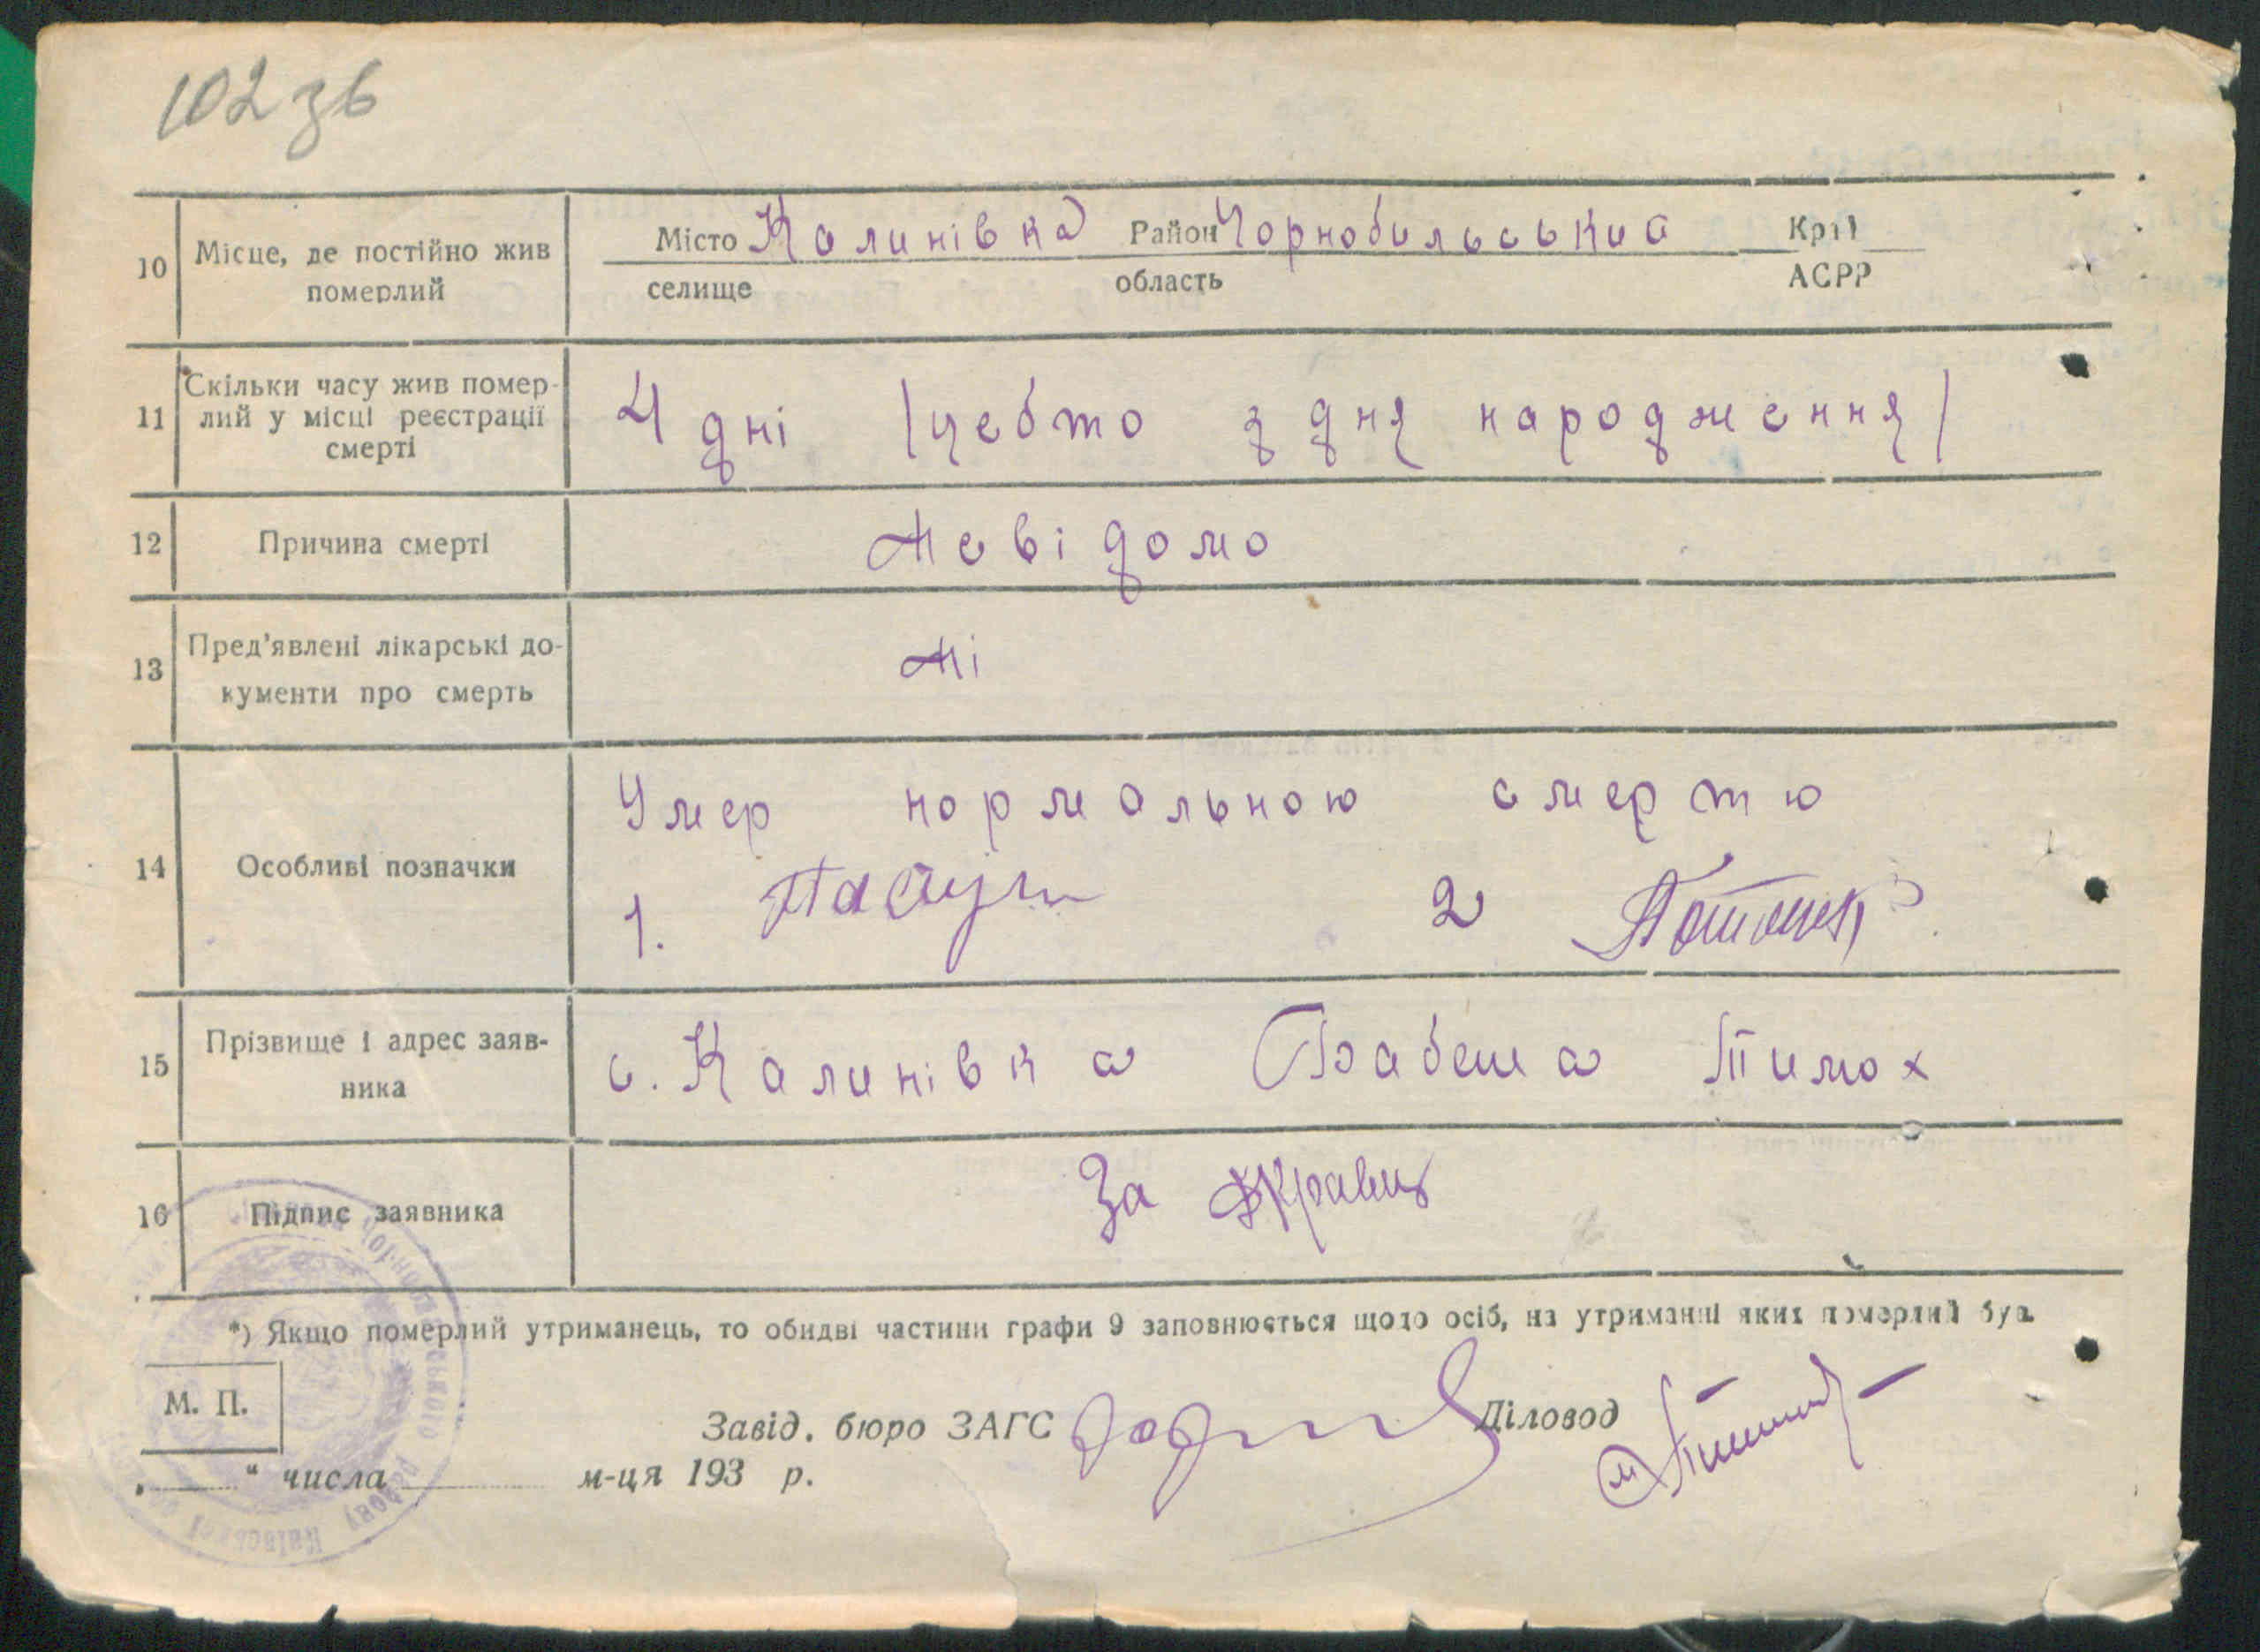 102 зв
10 Місце, де постійно жив померлий
Місто Калинівка Район Чорнобильський Край
селище область АСРР
11 Скільки часу жив помер-
лий у місці реєстрації
смерті
4 дні /цебто з дня народження/
12 Причина смерті
Невідомо
13 Пред'явлені лікарські до-
кументи про смерть
Ні
14 Особливі позначки
Умер нормальною смертю
1. 2
15 Прізвище і адрес заяв-
ника
с. Калинівка Тимох
16 Підпис заявника
За Кравец
*) Якщо померлий утриманець, то обидві частини графи 9 заповнюється щодо осіб, на утриманні яких померлий був.
М. П.
Завід. бюро ЗАГС Діловод
„ “ числа м-ця 193 р.